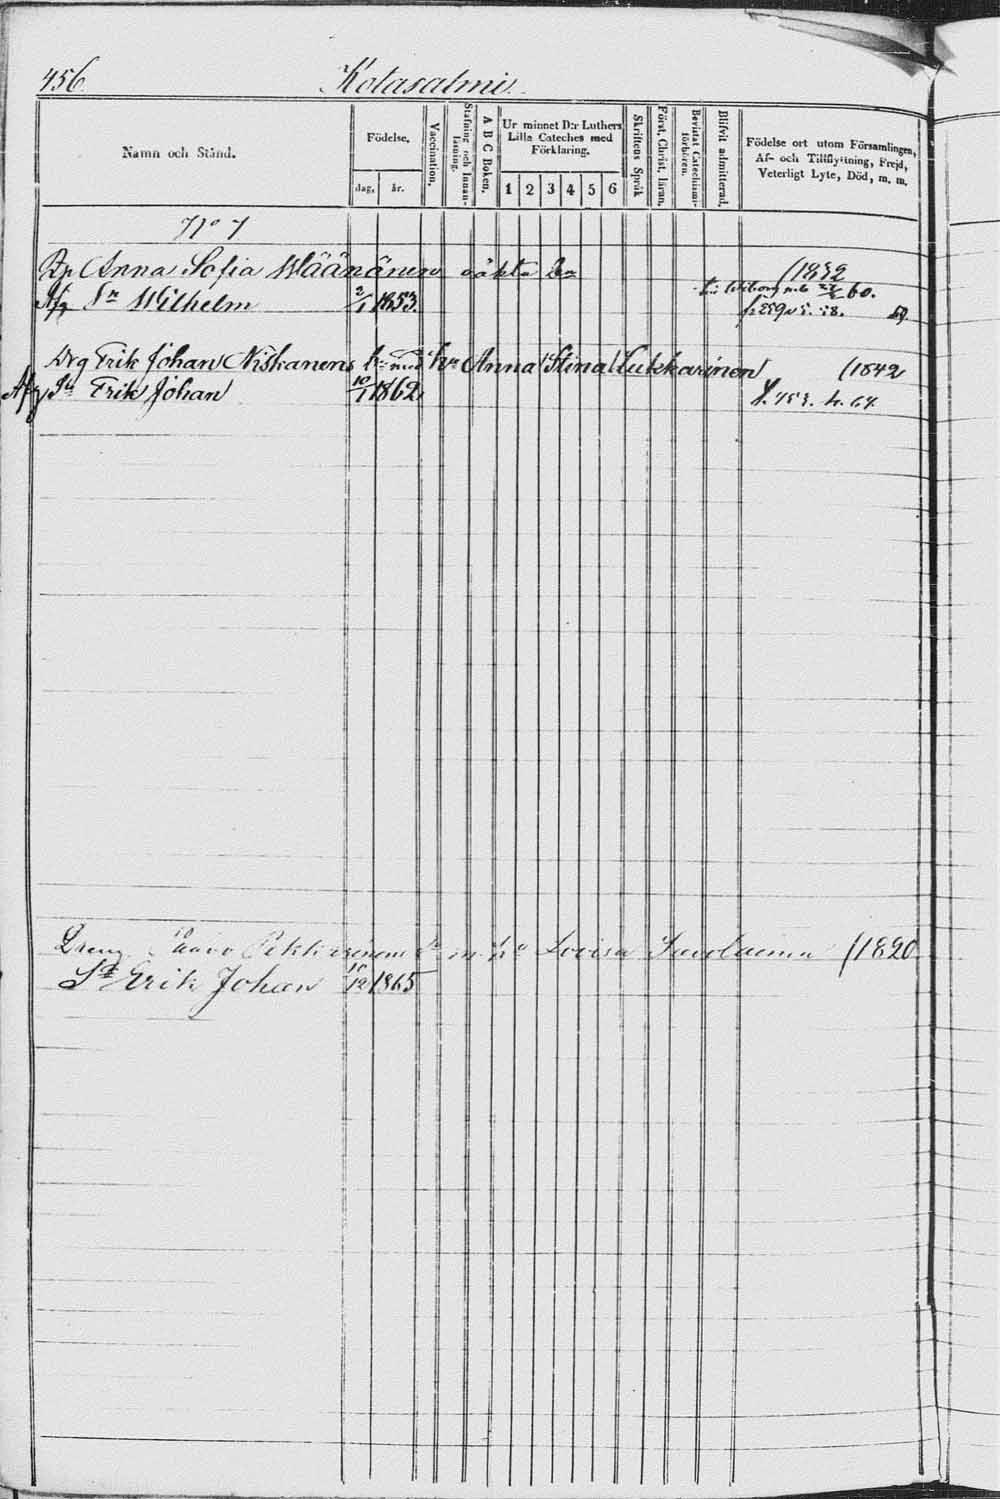 456. Kotasalmi.
Namn och Stånd.
Födelse.
dag. år.
Vaccination.
Stafning och Innanläsning.
A B C Boken.
Ur minnet D:r Luthers Lilla Cateches med Förklaring.
1 2 3 4 5 6
Skriftens Språk
Först. Christ. läran.
Bevistat Catechismiförhören.
Blifvit admitterad.
Födelse ort utom Församlingen, Af- och Tillflyttning, Frejd, Veterligt Lyte, Död, m. m.
No 7
Pp Anna Sofia Väänänen oäkta (1832
Afg Sn Wilhelm 2/1 1853. 60.
Drg Erik Johan Niskanens hu Anna Stina Lukkarinen (1842
Afg Sn Erik Johan 10/1 1862
Dreng Paavo Lovisa (1820
Sn Erik Johan 12 1865